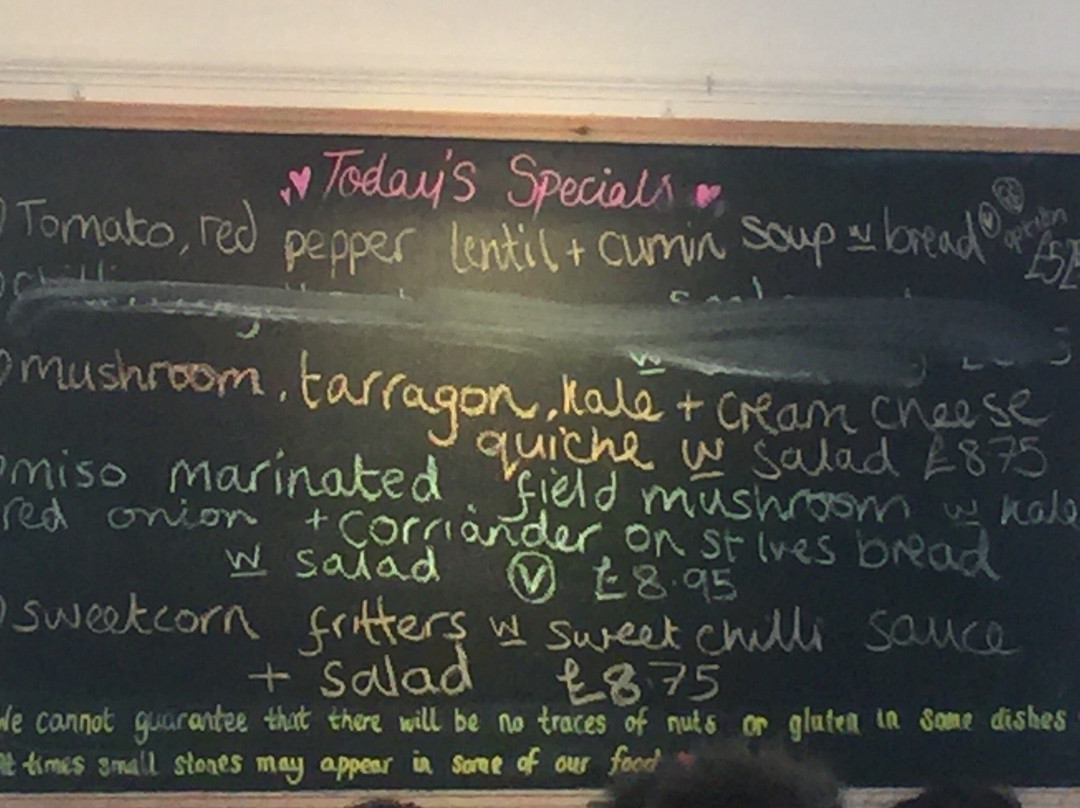 Today's Specials
Tomato, red pepper lentil + cumin soup w bread V GF option
chilli
w
mushroom, tarragon, kale + cream cheese
quiche w salad £8.75
miso marinated field mushroom w kale
red onion + corriander on st Ives bread
w salad V £8.95
sweetcorn fritters w sweet chilli sauce
+ salad £8.75
We cannot guarantee that there will be no traces of nuts or gluten in some dishes
At times small stones may appear in some of our food